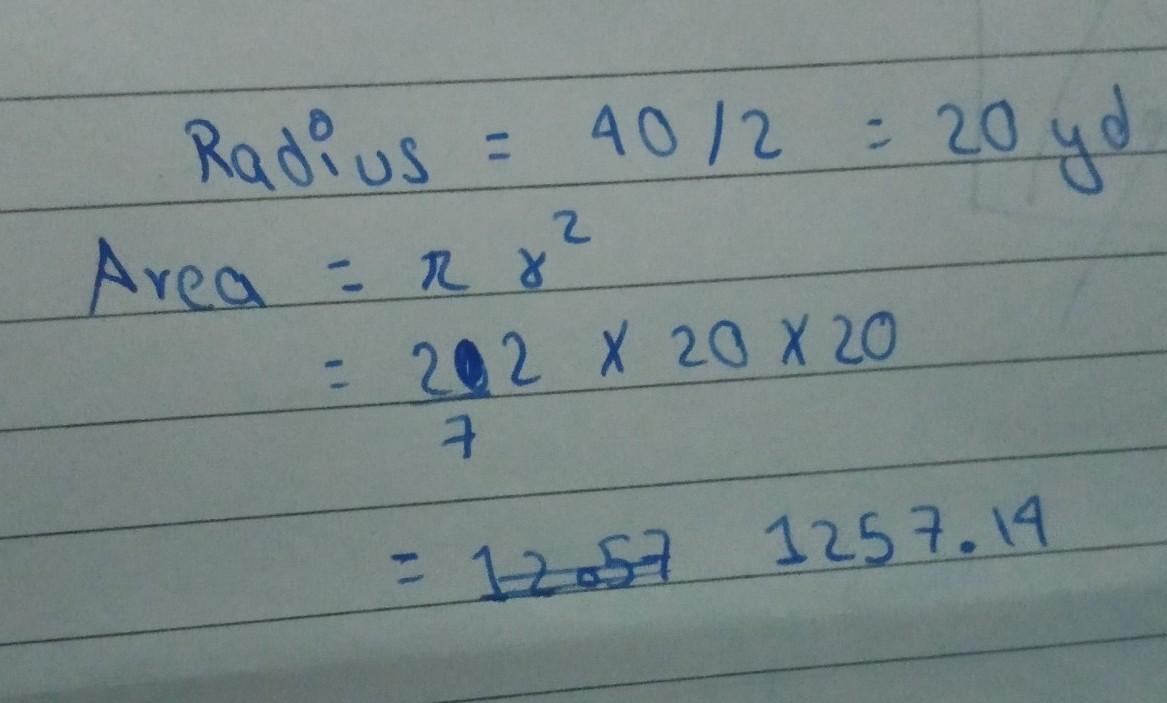 Radius = 40/2 = 20 yd
Area = π r²
= 22 x 20 x 20
7
= 12.57 1257.14